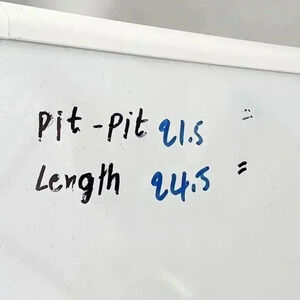 Pit - Pit 21.5 "
Length 24.5 "